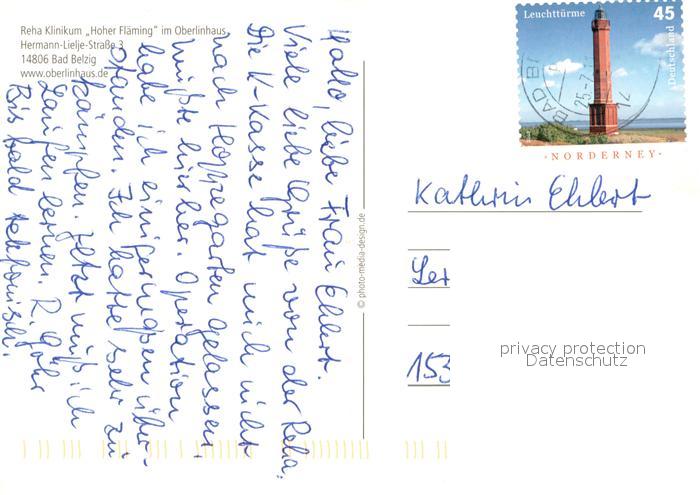 Reha Klinikum „Hoher Fläming“ im Oberlinhaus
Hermann-Lielje-Straße 3
14806 Bad Belzig
www.oberlinhaus.de
Hallo, liebe Frau Ehlert.
Viele liebe Grüße von der Reha.
Die K-Kasse hat mich nicht
nach Hoppegarten gelassen,
mußte hierher. Operation
habe ich einigermaßen über-
standen. Ich hatte sehr zu
kämpfen. Jetzt muß ich
Laufen lernen. R. Göhr
Bis bald telefonisch.
© photo-media-design.de
Leuchttürme 45
Deutschland
NORDERNEY
BAD B
25.-7
12
Kathrin Ehlert
Ler
153
privacy protection
Datenschutz